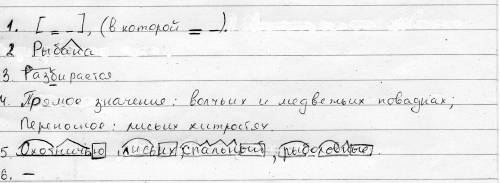 1. [ = _ ], (в которой = _ ).
2 Рыбака
3. Разбирается
4. Прямое значение: волчьих и медвежьих повадках;
Переносное: лисьих хитростях.
5 Охотничью, лисьих, спальный, рыболовные.
6. –